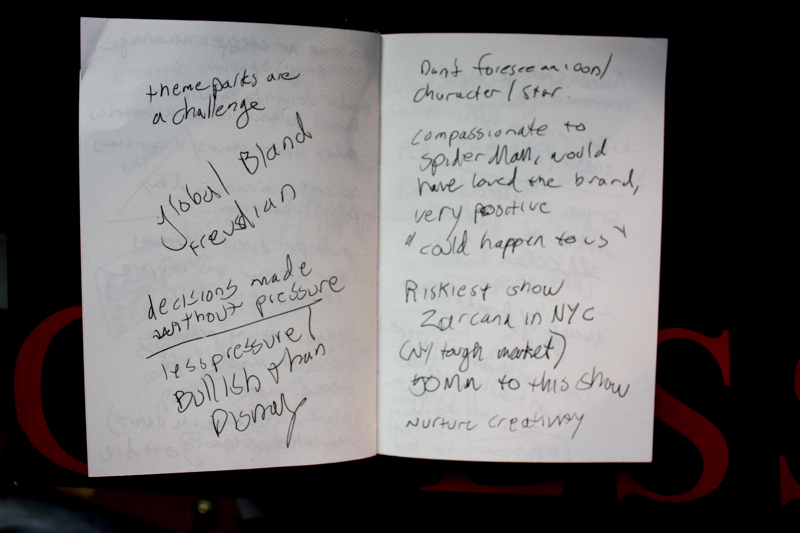 theme parks are
a challenge
global Bland
freudian
decisions made
without pressure
less pressure/
Bullish than
Disney
Don't foresee an icon/
character/star.
compassionate to
spider Man, would
have loved the brand,
very positive
"could happen to us"
Riskiest show
Zarcana in NYC
(NY tough market)
50mn to this show
nurture creativity
ESS